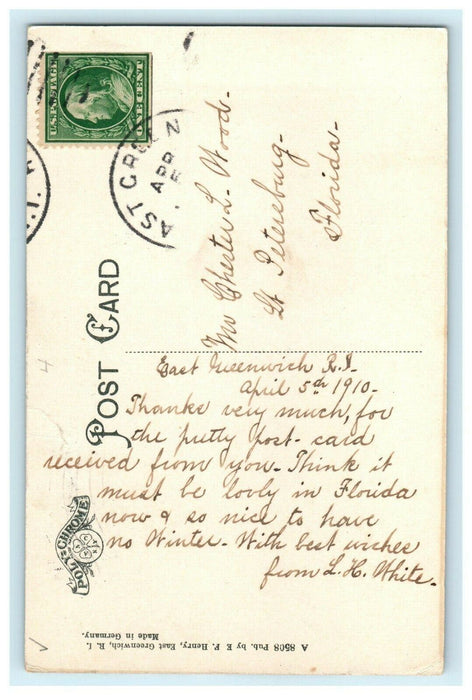 U.S. POSTAGE
ONE CENT
AST GREEN
APR
R.I.
POST CARD
Mr Chester L. Wood-
St Petersburg-
Florida-
East Greenwich R.I-
April 5th 1910-
Thanks very much, for
the putty post-card
received from you- Think it
must be lovly in Florida
now & so nice to have
no Winter- With best wiches
from L. H. White-
POLY-CHROME
A 8508 Pub. by E. F. Henry, East Greenwich, R. I.
Made in Germany.
4